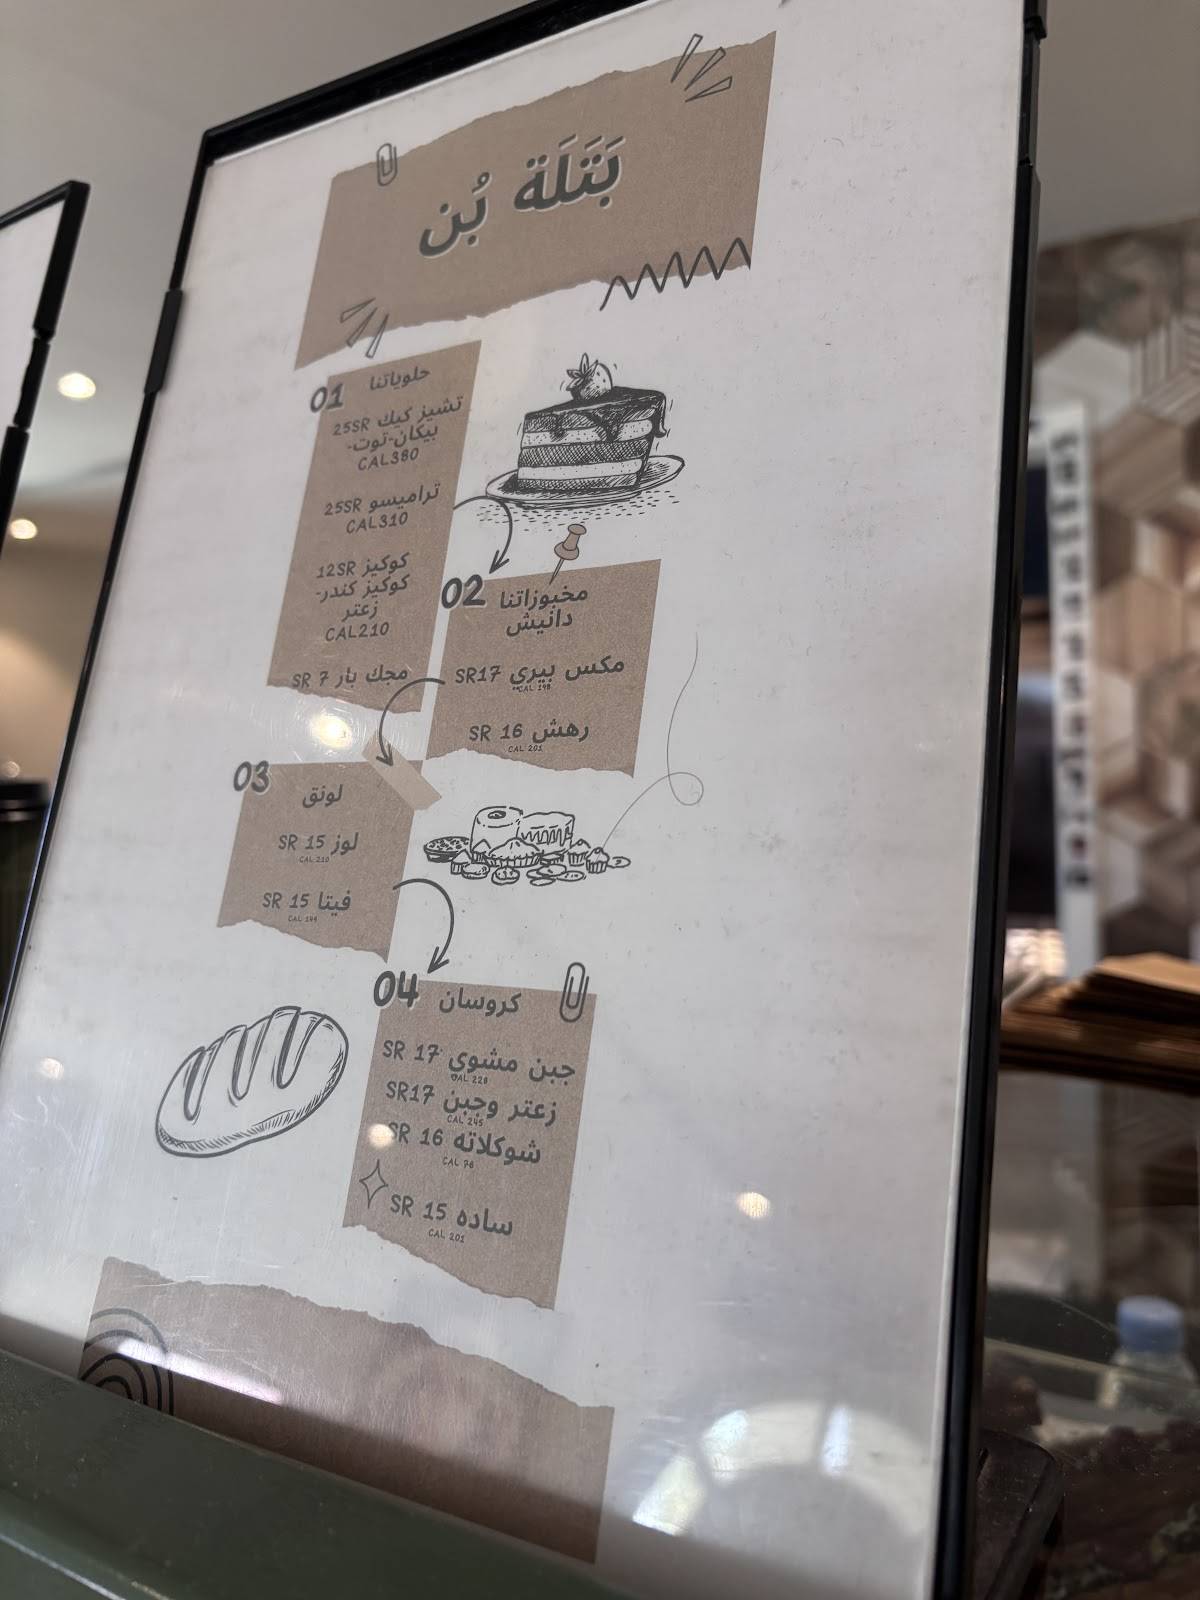 بَتَلَة بُن
01 حلوياتنا
تشيز كيك 25SR
بيكان-توت-
CAL380
تراميسو 25SR
CAL310
كوكيز 12SR
كوكيز كندر-
زعتر
CAL210
مجك بار 7 SR
02 مخبوزاتنا
دانيش
مكس بيري SR17
CAL 198
رهش 16 SR
CAL 201
03
لونق
لوز 15 SR
CAL 210
فيتا 15 SR
CAL 194
04 كروسان
جبن مشوي 17 SR
CAL 228
زعتر وجبن SR17
CAL 245
شوكلاته 16 SR
CAL 76
ساده 15 SR
CAL 201